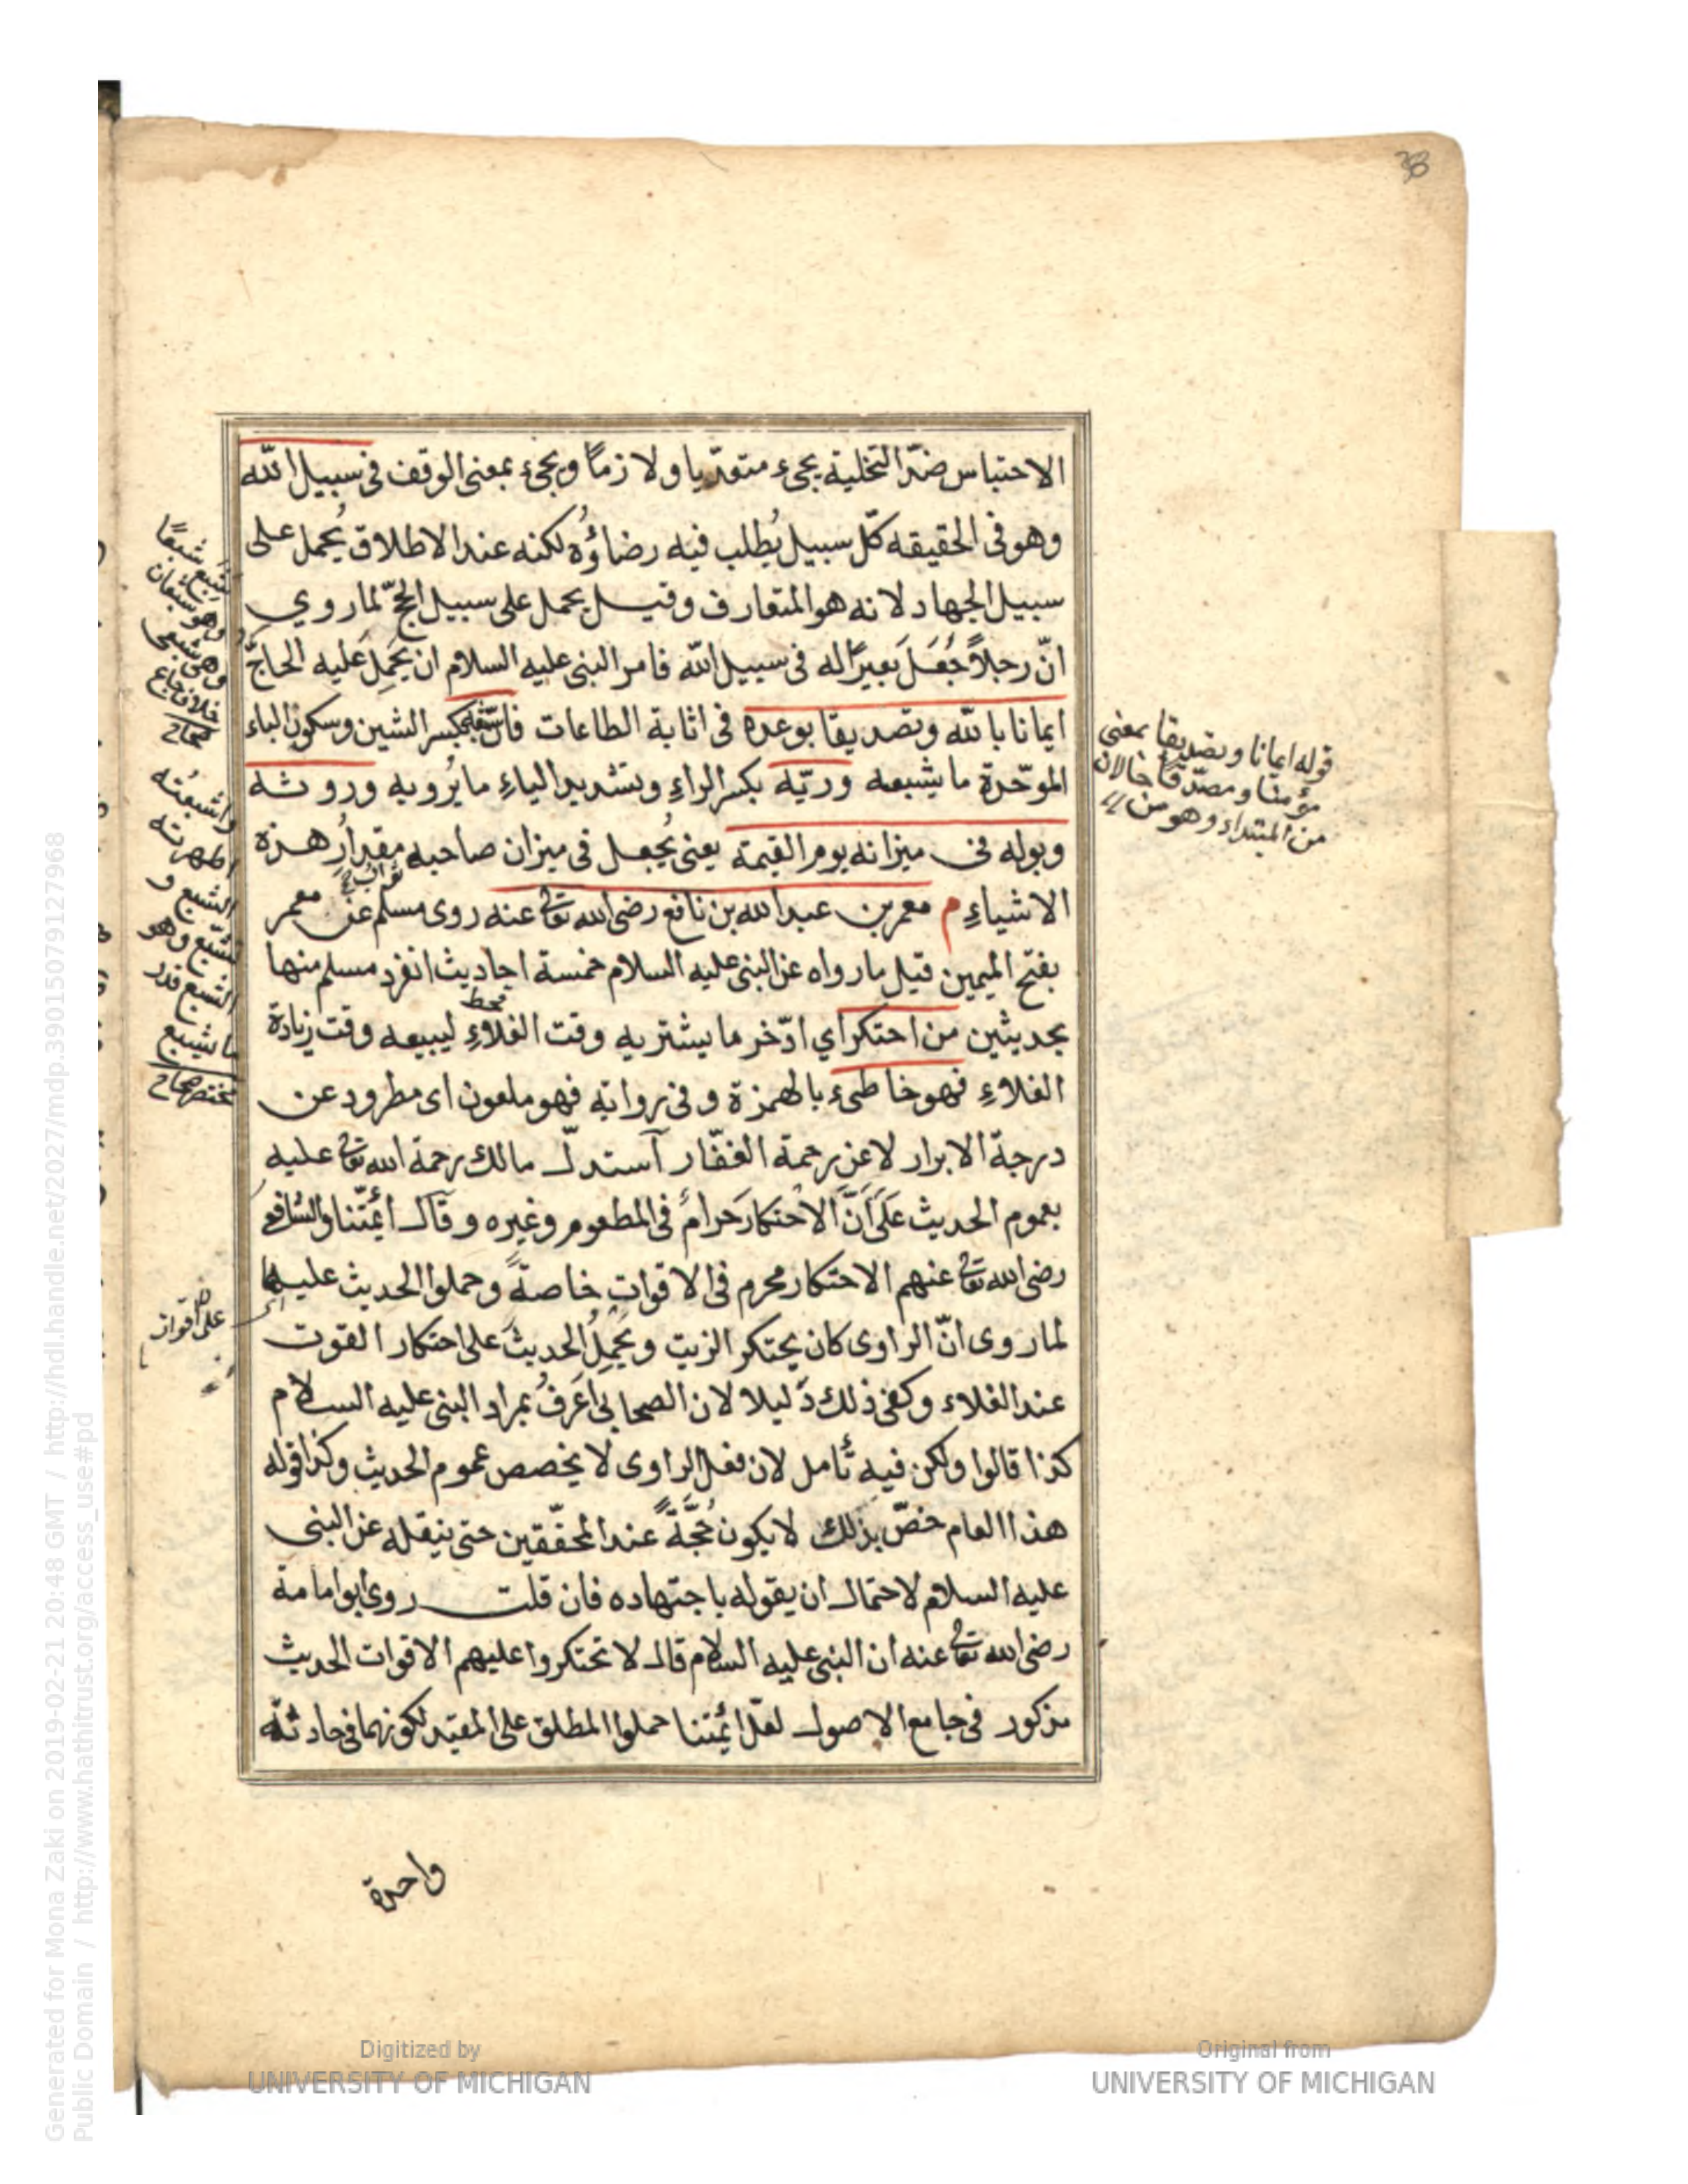 33
الاحتباس ضدّ التخلية يجىء متعدّيا ولازماً ويجىء بمعنى الوقف فى سبيل الله
وهو فى الحقيقه كلّ سبيل يُطلب فيه رضاؤُه لكنه عند الاطلاق يُحمل على
سبيل الجهاد لانه هو المتعارف وقيل يحمل على سبيل الحجّ لما روي
انّ رجلاً جَعَلَ بعيرًا له فى سبيل الله فامر النبى عليه السلام ان يَحمِل عَليه الحاجّ
ايمانا بالله وتصديقا بوعده فى اثابة الطاعات فانّ شبعه بكسر الشين وسكون الباء
الموحّدة ما يشبعه وريّه بكسر الراءِ وتشديد الياءِ ما يُرويه وروثه
وبوله فى ميزانه يوم القيمة يعنى يُجعل فى ميزان صاحبه مقدارُ هذه
الاشياءِ م معمر بن عبد الله بن نافع رضى الله تعالى عنه روى مسلم عن معمر
بفتح الميمين قيل ما رواه عن النبى عليه السلام خمسة احاديث انفرد مسلم منها
بحديثين من احتكر اي ادّخر ما يشتريه وقت الغلاءِ ليبيعه وقت زيادة
قحط
الغلاءِ فهو خاطىء بالهمزة وفى رواية فهو ملعون اى مطرود عن
درجة الابرار لا عن رحمة الغفّار استدلّ مالك رحمة الله تعالى عليه
بعموم الحديث عَلَى اَنَّ الاحتكارَ حرامٌ فى المطعوم وغيره وقال ائمّتنا والشافعى
رضى الله تعالى عنهم الاحتكار محرم فى الاقوات خاصةً وحملوا الحديث عليها
لما روى انّ الراوى كان يحتكر الزيت ويَحمِلُ الحديثَ على احتكار القوت
عند الغلاء وكفى ذلك دَليلا لان الصحابى اَعَرفُ بمراد النبى عليه السلام
كذا قالوا ولكن فيه تأمل لان فعل الراوى لا يخصص عموم الحديث وكذا قوله
هذا العام خصّ بذلك لا يكون حُجَّةً عند المحقّقين حتى ينقله عن النبى
عليه السلام لاحتمال ان يقوله باجتهاده فان قلت روى ابو امامة
رضى الله تعالى عنه ان النبى عليه السلام قال لا تحتكروا عليهم الاقوات الحديث
مذكور فى جامع الاصول لعلّ ائمّتنا حملوا المطلق على المقيد لكونهما فى حادثة
واحدة
قوله ايمانا وتصديقا بمعنى
مؤمنا ومصدّقا حالان
من المبتداء وهو من
شبع شبعًا
وهو شبعان
وهى شبعى
خلاف جاع
صحاح
واشبعته
اطهرته
الشبع و
الشبع وهو
الشبع قدر
ما يشبع
مختصر صحاح
على اقوات
Generated for Mona Zaki on 2019-02-21 20:48 GMT / http://hdl.handle.net/2027/mdp.39015079127968
Public Domain / http://www.hathitrust.org/access_use#pd
Digitized by
UNIVERSITY OF MICHIGAN
Original from
UNIVERSITY OF MICHIGAN